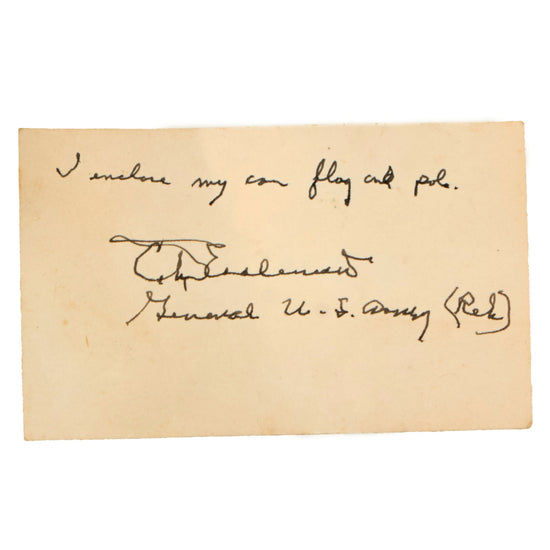 I enclose my car flag and pole.
General U.S. Army (Ret)